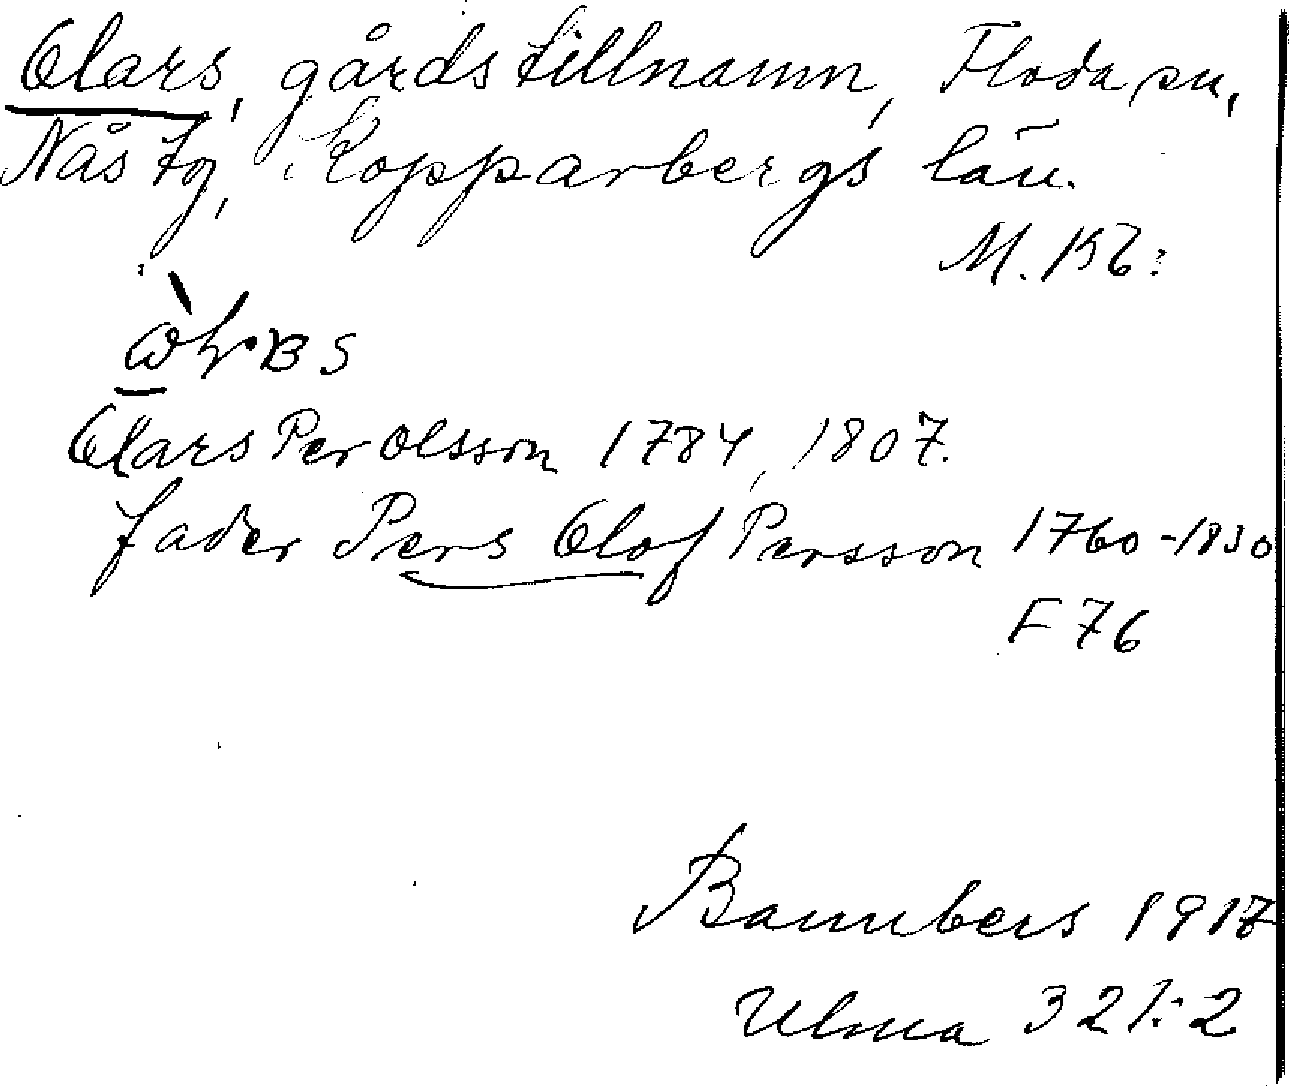 Olars, gårdstillnamn, Floda sn,
Nås tg, Kopparbergs län.
M. 156:
Olars Per Olsson 1784, 1807.
fader Pers Olof Persson 1760-1830
F 76
Bannbers 1917
Ulma 321:2